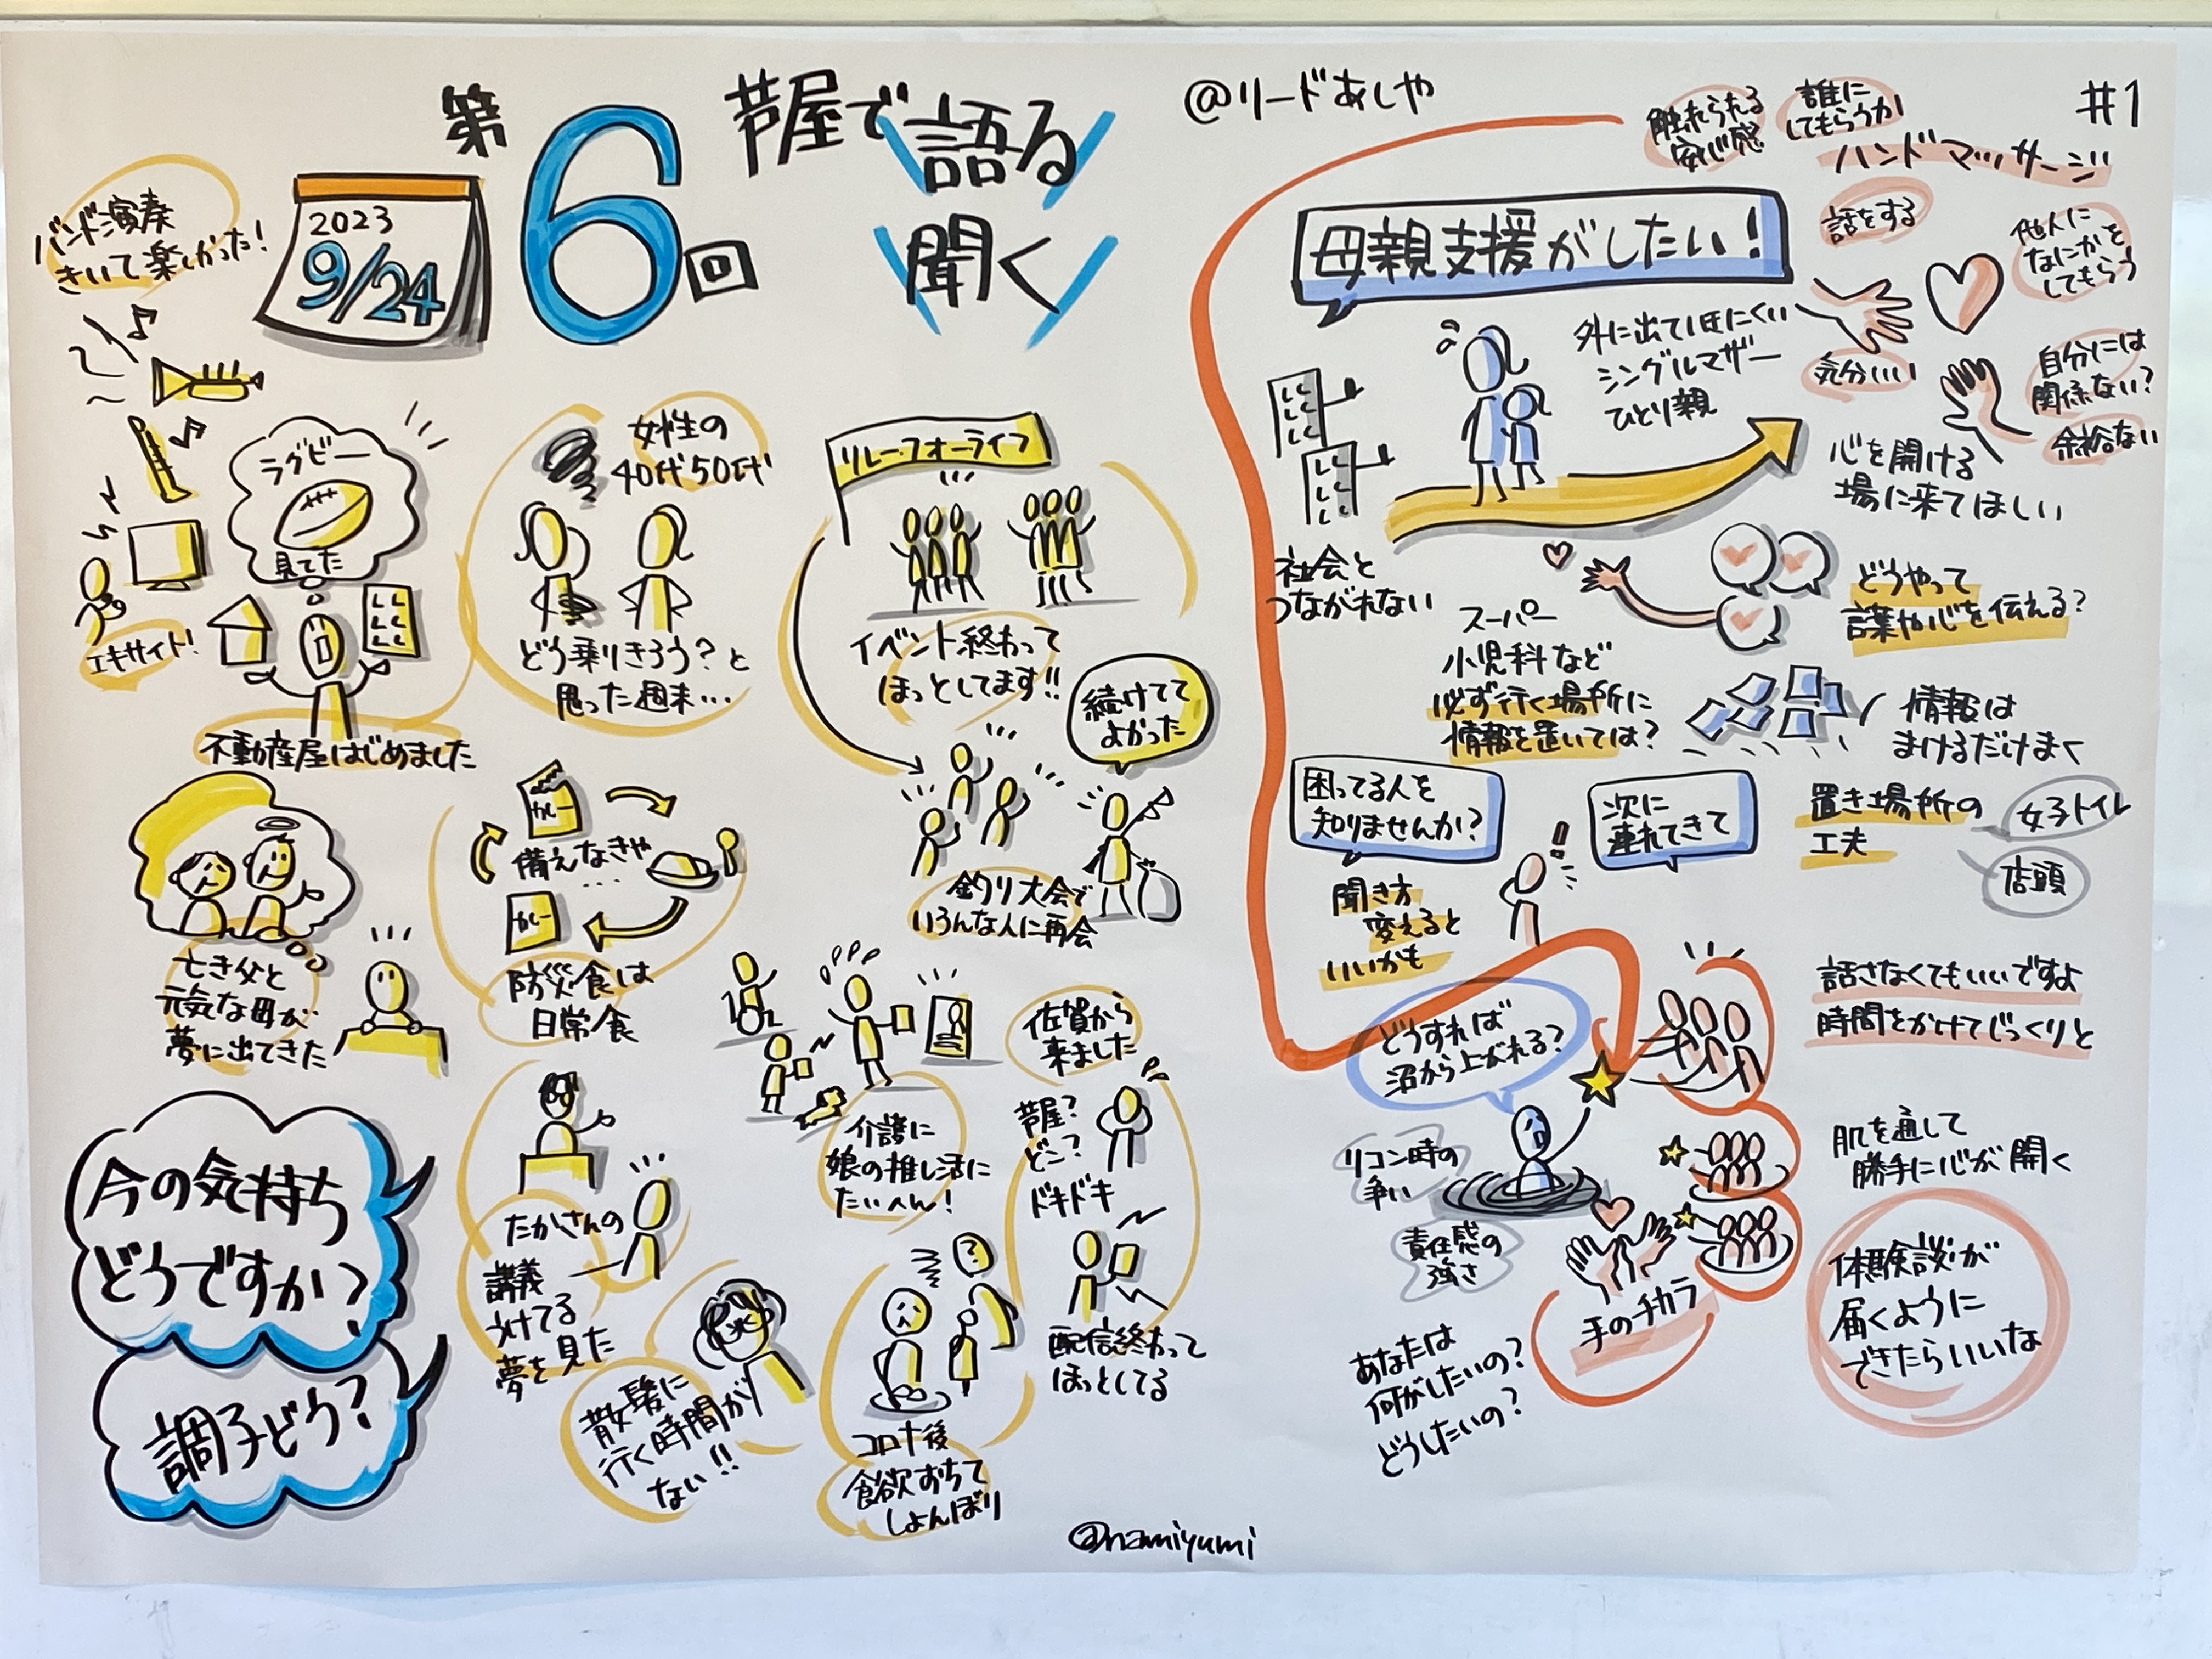 第6回
芦屋で
語る
聞く
@リードあしや
#1
2023
9/24
バンド演奏
きいて楽しかった!
エキサイト!
ラグビー
見てた
不動産屋はじめました
女性の
40代50代
どう乗りきろう?と
思った週末…
リレーフォーライフ
イベント終わって
ほっとしてます!!
続けてて
よかった
釣り大会で
いろんな人に再会
亡き父と
元気な母が
夢に出てきた
カレー
備えなきゃ
カレー
防災食は
日常食
介護に
娘の推し活に
たいへん!
佐賀から
来ました
芦屋?
どこ?
ドキドキ
配信終わって
ほっとしてる
今の気持ち
どうですか?
調子どう?
たかさんの
講義
うけてる
夢を見た
散髪に
行く時間が
ない!!
コロナ後
食欲おちて
しょんぼり
@namiyumi
触れられる
安心感
誰に
してもらうか
ハンドマッサージ
母親支援がしたい!
話をする
他人に
なにかを
してもらう
気分いい
自分には
関係ない?
余裕ない
外に出ていきにくい
シングルマザー
ひとり親
心を開ける
場に来てほしい
社会と
つながれない
どうやって
言葉や心を伝える?
スーパー
小児科など
必ず行く場所に
情報を置いては?
情報は
まけるだけまく
置き場所の
工夫
女子トイレ
店頭
困ってる人を
知りませんか?
次に
連れてきて
聞き方
変えると
いいかも
話さなくてもいいですよ
時間をかけてじっくりと
どうすれば
沼から上がれる?
リコン時の
争い
責任感の
強さ
肌を通して
勝手に心が開く
手のチカラ
体験談が
届くように
できたらいいな
あなたは
何がしたいの?
どうしたいの?